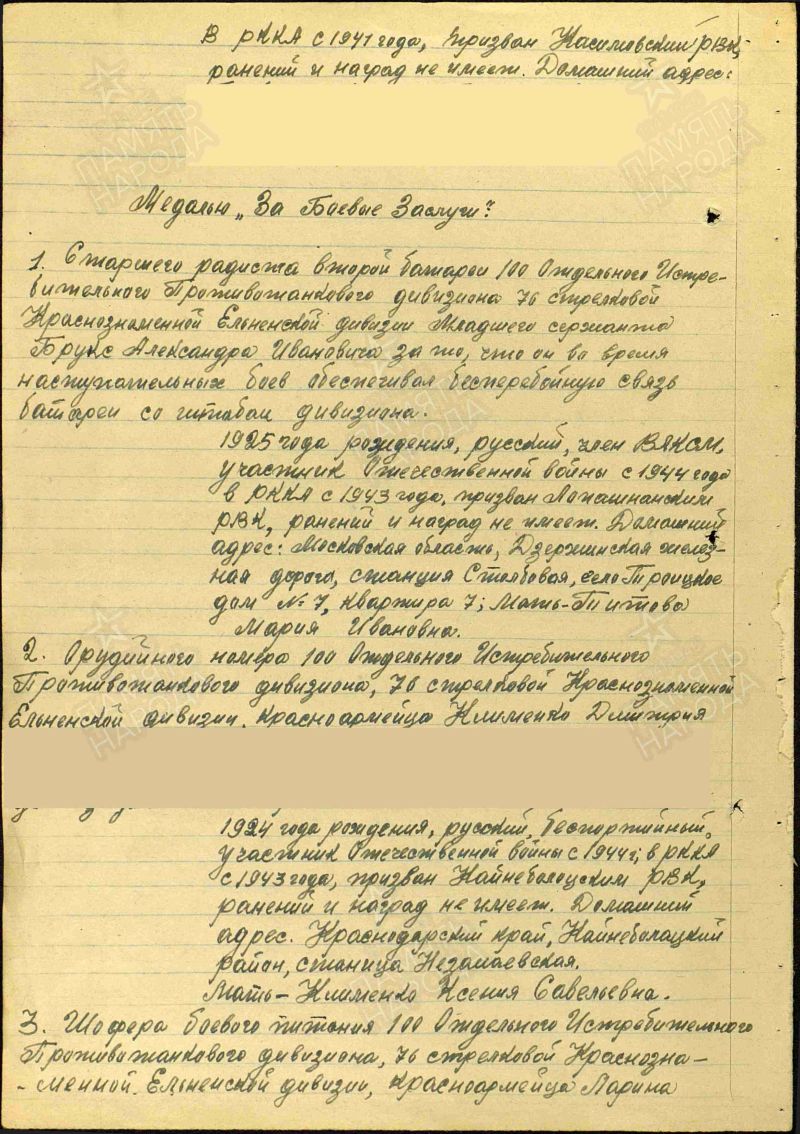 В РККА с 1941 года, призван Касимовский РВК,
ранений и наград не имеет. Домашний адрес:
Медалью „За Боевые Заслуги"
1. Старшего радиста второй батареи 100 Отдельного Истре-
бительного Противотанкового дивизиона 76 стрелковой
Краснознаменной Ельненской дивизии Младшего сержанта
Брукс Александра Ивановича за то, что он во время
наступательных боев обеспечивал бесперебойную связь
батареи со штабом дивизиона.
1925 года рождения, русский, член ВЛКСМ,
участник Отечественной войны с 1944 года
в РККА с 1943 года, призван Лопаснинским
РВК, ранений и наград не имеет. Домашний
адрес: Московская область, Дзержинская желез-
ная дорога, станция Столбовая, село Троицкое
дом № 7, квартира 7; Мать-Титова
Мария Ивановна.
2. Орудийного номера 100 Отдельного Истребительного
Противотанкового дивизиона, 76 стрелковой Краснознаменной
Ельненской дивизии. Красноармейца Клименко Дмитрия
1924 года рождения, русский, беспартийный,
участник Отечественной войны с 1944 г; в РККА
с 1943 года, призван РВК,
ранений и наград не имеет. Домашний
адрес. Краснодарский край,
район, станица Незамаевская.
Мать - Клименко Ксения Савельевна.
3. Шофера боевого питания 100 Отдельного Истребительного
Противотанкового дивизиона, 76 стрелковой Краснозна-
-менной. Ельненской дивизии, Красноармейца Ларина
ПАМЯТЬ
НАРОДА